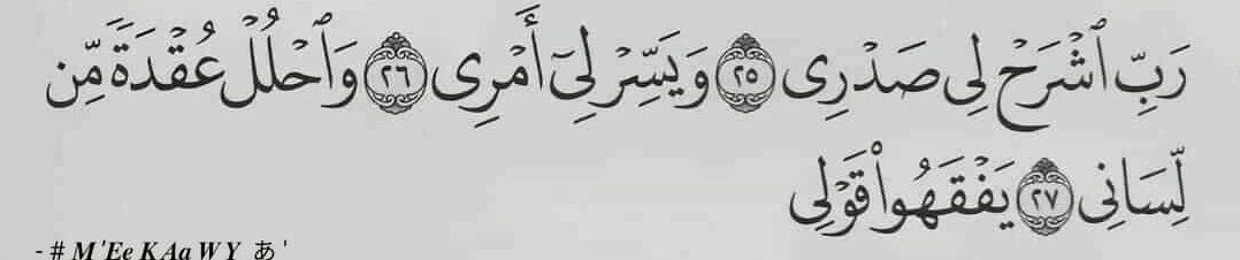 رَبِّ ٱشْرَحْ لِى صَدْرِى ٢٥ وَيَسِّرْ لِىٓ أَمْرِى ٢٦ وَٱحْلُلْ عُقْدَةً مِّن
لِّسَانِى ٢٧ يَفْقَهُوا۟ قَوْلِى
- # M'Ee KAa W Y あ '